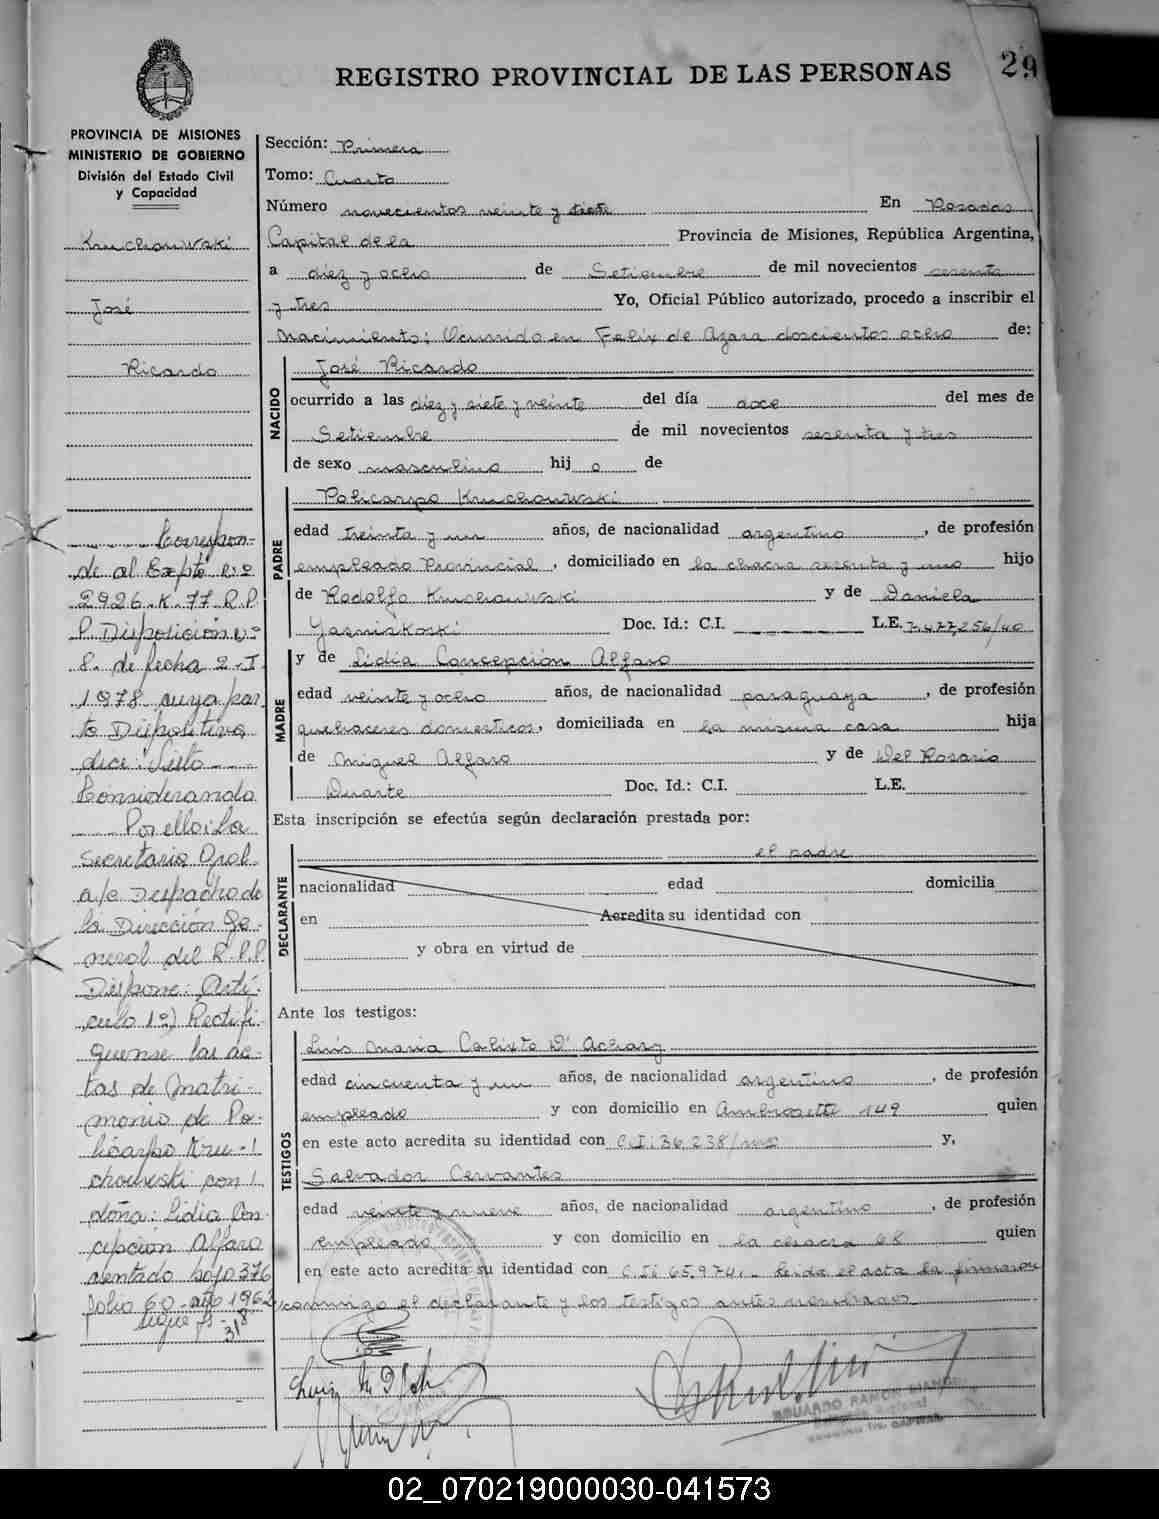 REGISTRO PROVINCIAL DE LAS PERSONAS
29
PROVINCIA DE MISIONES
MINISTERIO DE GOBIERNO
División del Estado Civil
y Capacidad
Kruchowski
José
Ricardo
Correspon-
de al Expte n:o
2926.K.77 R.P.
P. Disposición n:o
8. de fecha 2-I
1978 cuya par
te Dispositiva
dice: Visto
Considerando
Por ello: La
Secretaria Gral.
a/c Despacho de
la Dirección Ge-
neral del R.P.P.
Dispone: Artí-
culo 1º) Rectifi-
quense las ac-
tas de Matri-
monio de Po-
licarpo Kru-
chowski con
doña: Lidia Con
cepcion Alfaro
asentado bajo 376
folio 60 año 1962
sigue fs. 318
Sección: Primera
Tomo: Cuarto
Número novecientos veinte y siete En Posadas
Capital de la Provincia de Misiones, República Argentina,
a diez y ocho de Setiembre de mil novecientos sesenta
y tres Yo, Oficial Público autorizado, procedo a inscribir el
Nacimiento; Ocurrido en Felix de Azara doscientos ocho de:
NACIDO
José Ricardo
ocurrido a las diez y siete y veinte del día doce del mes de
Setiembre de mil novecientos sesenta y tres
de sexo masculino hij o de
PADRE
Policarpo Kruchowski
edad treinta y un años, de nacionalidad argentino, de profesión
empleado Provincial, domiciliado en la chacra sesenta y uno hijo
de Rodolfo Kruchowski y de Daniela
Doc. Id.: C.I. L.E. 7.477,256/40
MADRE
y de Lidia Concepción Alfaro
edad veinte y ocho años, de nacionalidad paraguaya, de profesión
quehaceres domesticos, domiciliada en la misma casa hija
de Miguel Alfaro y de Del Rosario
Duarte Doc. Id.: C.I. L.E.
Esta inscripción se efectúa según declaración prestada por:
DECLARANTE
el padre
nacionalidad edad domicilia
en Acredita su identidad con
y obra en virtud de
Ante los testigos:
TESTIGOS
Luis Maria Calixto D' Achary
edad cincuenta y un años, de nacionalidad argentino, de profesión
empleado y con domicilio en Ambrosetti 149 quien
en este acto acredita su identidad con C.I: 36,238/ms y,
Salvador Cervantes
edad veinte y nueve años, de nacionalidad argentino, de profesión
empleado y con domicilio en la chacra 68 quien
en este acto acredita su identidad con C.I: 65.974,- leida el acta la firmaron
conmigo el declarante y los testigos antes nombrados
EDUARDO RAMON
02_070219000030-041573